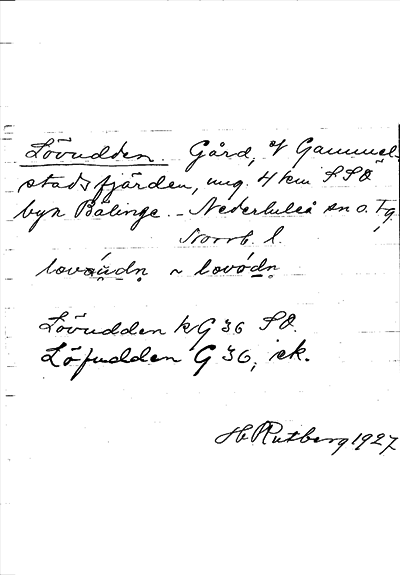 Lövudden. Gård, v Gammel-
stadsfjärden, ung. 4 km SSO
byn Bälinge. – Nederluleå sn o. tg,
Norrb. l.
Lövudden kG 36 SO.
Löfudden G 36, ek.
H. Rutberg 1927